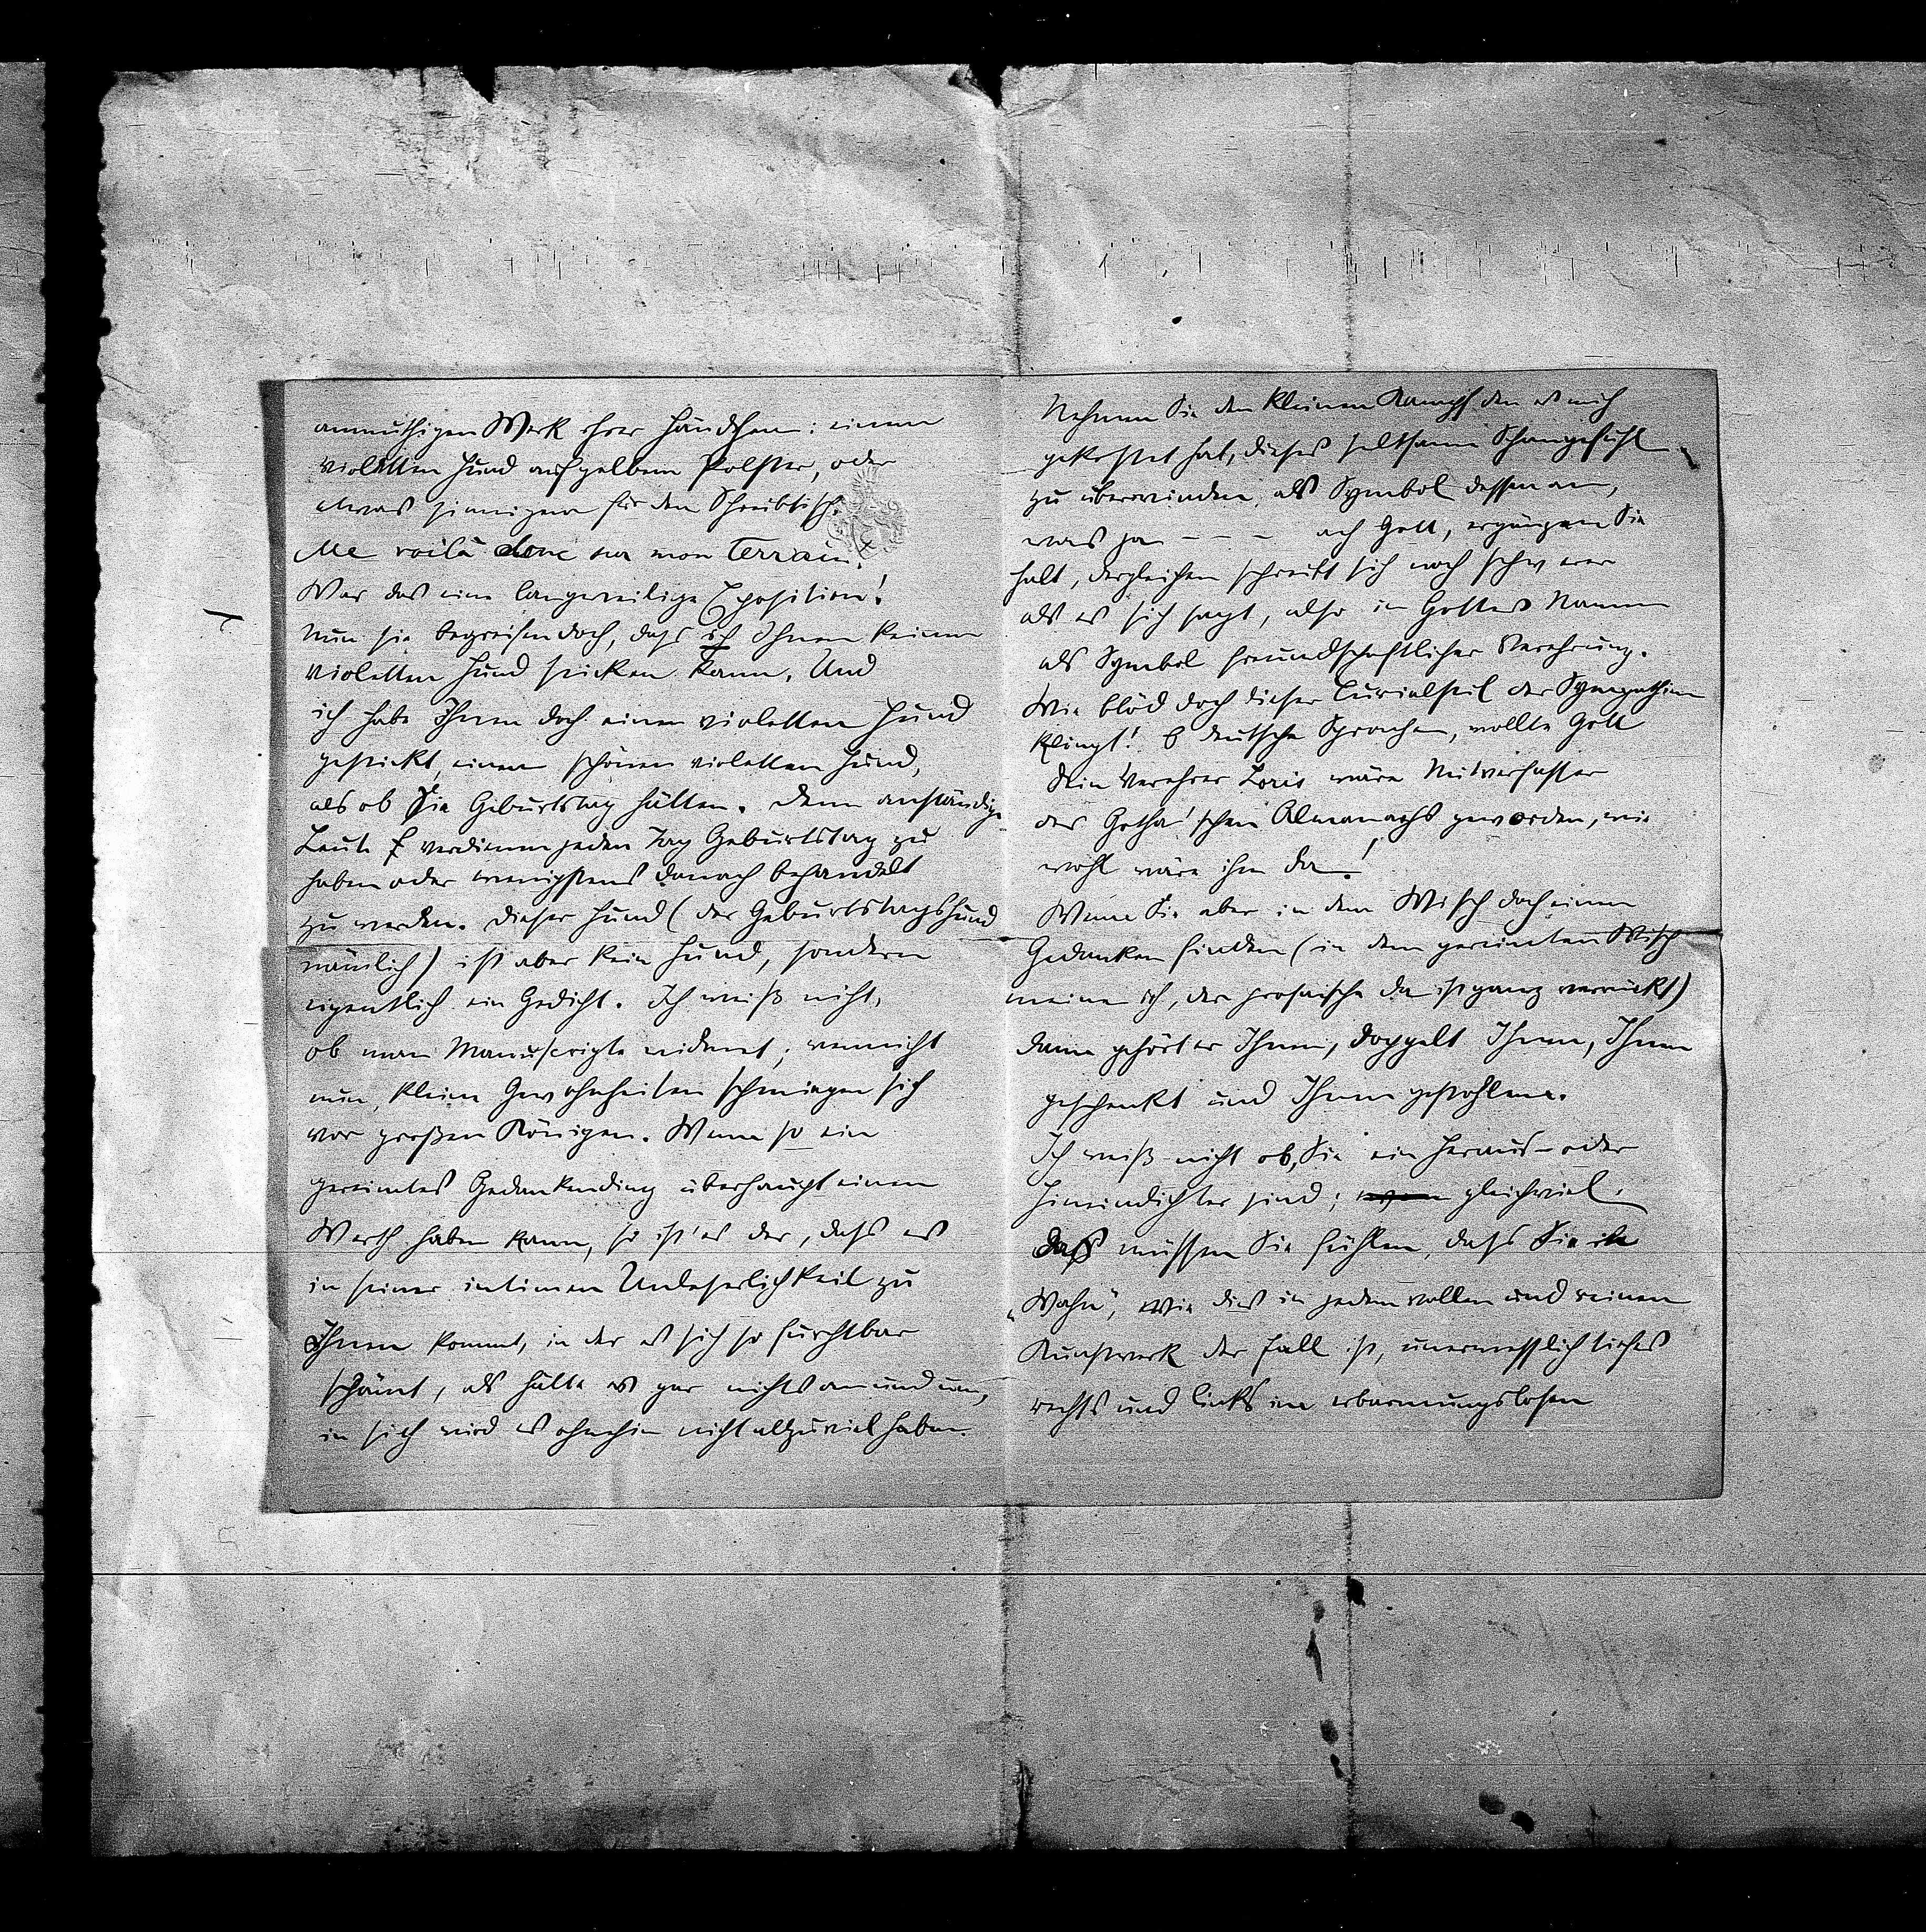 anmuthigen Werk ihrer Händchen: einen
violetten Hund auf gelbem Polster, oder
etwas sinnigem für den Schreibtisch.
Me voilà donc sur mon terrain.
War das eine langweilige Exposition!
Nun sie begreifen doch, dass ich Ihnen keinen
violetten Hund sticken kann. Und
ich habe Ihnen doch einen violetten Hund
gestickt, einen schönen violetten Hund,
als ob Sie Geburtstag hätten. Denn anständige
Leute verdienen jeden Tag Geburtstag zu
haben oder wenigstens danach behandelt
zu werden. Dieser Hund (der Geburtstagshund
nämlich) ist aber kein Hund, sondern
eigentlich ein Gedicht. Ich weiß nicht,
ob man Manuscripte widmet; wenn nicht
nun, kleine Gewohnheiten schmiegen sich
vor großen Königen. Wenn so ein
gereimtes Gedankending überhaupt einen
Werth haben kann, so ist's der, dass es
in seiner intimen Unleserlichkeit zu
Ihnen kommt, in der es sich so furchtbar
schämt, als hätte es gar nichts an und um,
in sich wird es ohnehin nicht allzuviel haben.
Nehmen Sie den kleinen Kampf den es mich
gekostet hat, dieses seltsame Schamgefühl
zu überwinden, als Symbol dessen an,
was ja – – – ach Gott, ergänzen Sie
halt, dergleichen schreibt sich noch schwerer
als es sich sagt, also in Gottes Namen
als Symbol freundschaftlicher Verehrung.
Wie blöd doch dieser Curialstil der Sympathien
klingt! O deutsche Sprache, wollte Gott
Dein Verehrer Loris wäre Mitverfasser
des Gotha'schen Almanachs geworden, wie
wohl wäre ihm da!
Wenn Sie aber in dem Wisch doch einen
Gedanken finden (in dem gereimten Wisch
meine ich, der prosaische da ist ganz verrückt)
dann gehört er Ihnen, doppelt Ihnen, Ihnen
geschenkt und Ihnen gestohlen.
Ich weiß nicht ob Sie ein Heraus- oder
Hineindichter sind; gleichviel.
Das müssen Sie fühlen, dass Sie im
„Wahn", wie dies in jedem vollen und reinen
Kunstwerk der Fall ist, unermesslich tiefes
rechts und links im erbarmungslosen